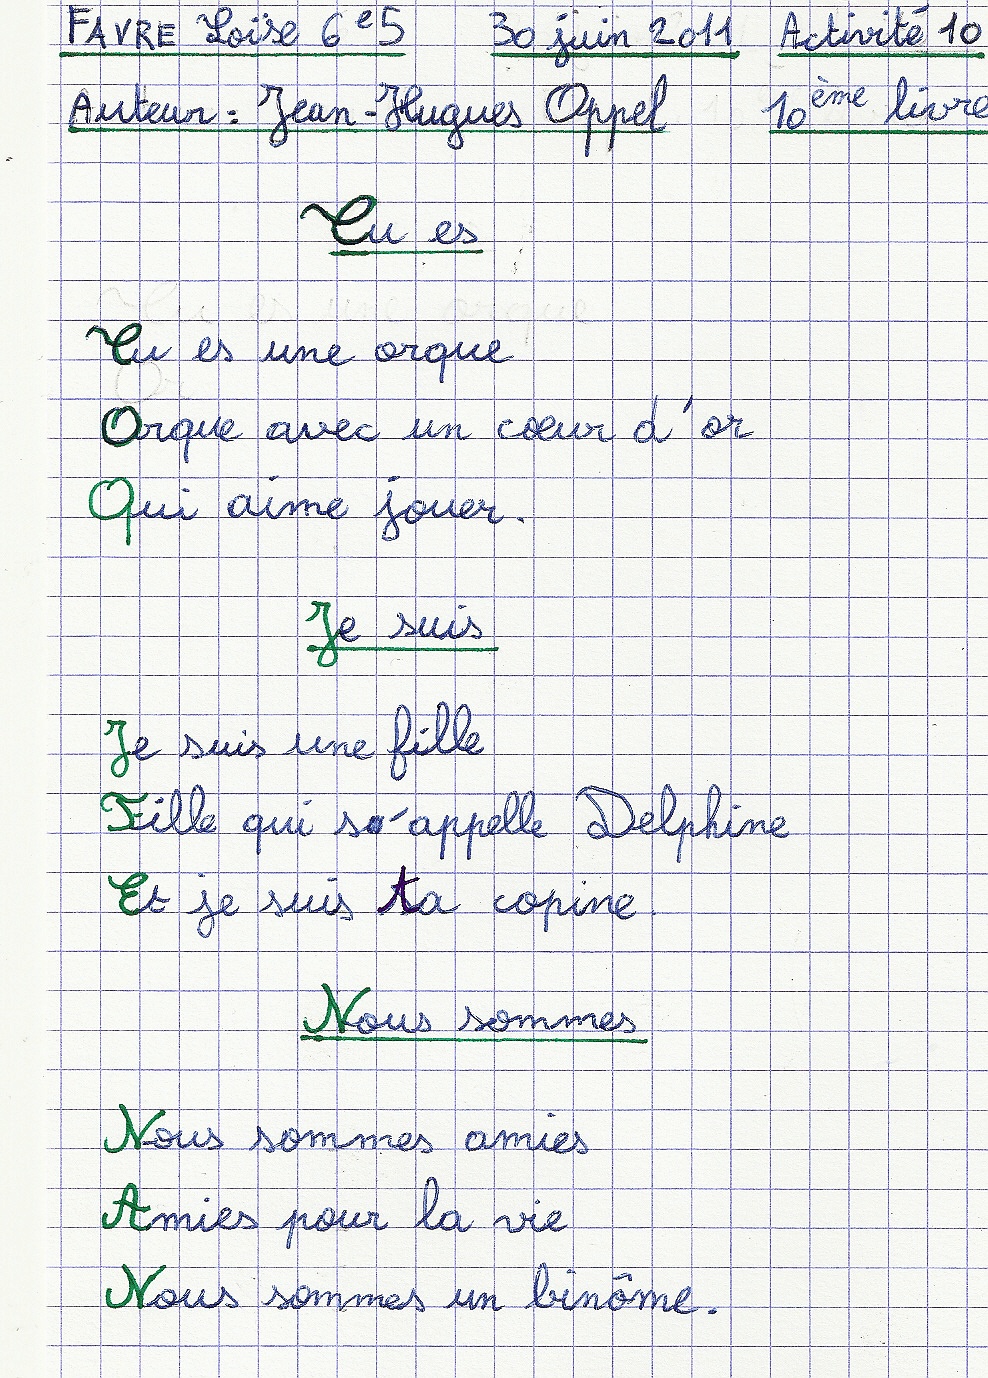 FAVRE Loïse 6e5 30 juin 2011 Activité 10
Auteur : Jean-Hugues Oppel 10ème livre
Tu es
Tu es une orque
Orque avec un cœur d'or
Qui aime jouer.
Je suis
Je suis une fille
Fille qui s'appelle Delphine
Et je suis ta copine.
Nous sommes
Nous sommes amies
Amies pour la vie
Nous sommes un binôme.